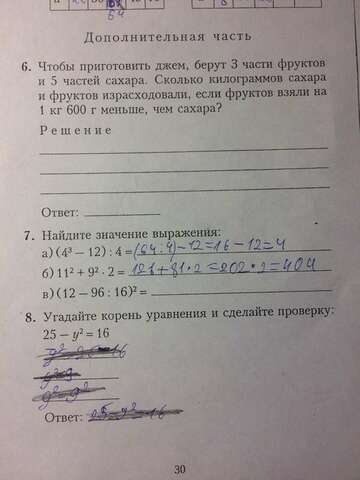 64
Дополнительная часть
6. Чтобы приготовить джем, берут 3 части фруктов
и 5 частей сахара. Сколько килограммов сахара
и фруктов израсходовали, если фруктов взяли на
1 кг 600 г меньше, чем сахара?
Решение
Ответ:
7. Найдите значение выражения:
а) (4³ − 12) : 4 = (64:4)−12=16−12=4
б) 11² + 9² · 2 = 121+81·2=202·2=404
в) (12 − 96 : 16)² =
8. Угадайте корень уравнения и сделайте проверку:
25 − y² = 16
Ответ: 25−y²=16
30